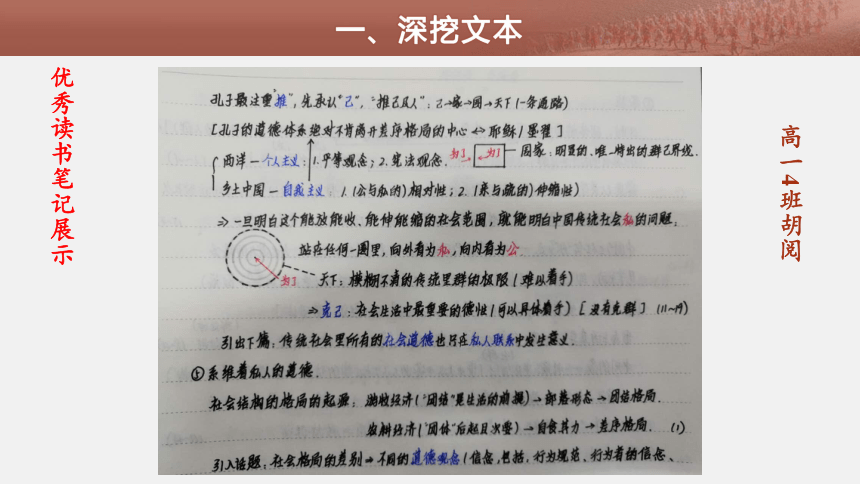 一、深挖文本
优秀读书笔记展示
高一4班胡阅
孔子最注重"推",先承认"己","推己及人":己→家→国→天下(一条通路)
[孔子的道德体系绝对不肯离开差序格局的中心 ⇔ 耶稣/墨翟]
西洋—个人主义:1.平等观念;2.宪法观念. 为I 为I 国家:明显的.唯一特出的群己界线.
乡土中国—自我主义:1.(公与私的)相对性;2.(亲与疏的)伸缩性)
⇒一旦明白这个能放能收、能伸能缩的社会范围,就能明白中国传统社会私的问题:
站在任何一圈里,向外看为私,向内看为公.
为I 天下:模糊不清的传统里群的极限(难以着手)
⇒克己:社会生活中最重要的德性(可以具体着手)[没有克群] (11~19)
引出下篇:传统社会里所有的社会道德也只在私人联系中发生意义.
⑤系维着私人的道德.
社会结构的格局的起源:游牧经济("团结"是生活的前提)→部落形态→团结格局.
农耕经济("团体"后起且次要)→自食其力→差序格局. (1)
引入话题:社会格局的差别→不同的道德观念(信念,包括:行为规范、行为者的信念、